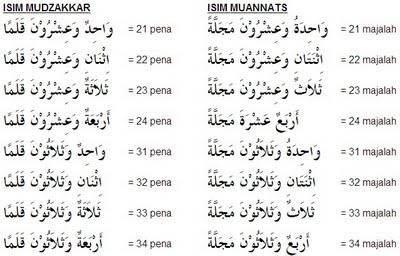 ISIM MUDZAKKAR
وَاحِدٌ وَعِشْرُوْنَ قَلَمًا = 21 pena
اِثْنَانِ وَعِشْرُوْنَ قَلَمًا = 22 pena
ثَلاَثَةٌ وَعِشْرُوْنَ قَلَمًا = 23 pena
أَرْبَعَةٌ وَعِشْرُوْنَ قَلَمًا = 24 pena
وَاحِدٌ وَثَلاَثُوْنَ قَلَمًا = 31 pena
اِثْنَانِ وَثَلاَثُوْنَ قَلَمًا = 32 pena
ثَلاَثَةٌ وَثَلاَثُوْنَ قَلَمًا = 33 pena
أَرْبَعَةٌ وَثَلاَثُوْنَ قَلَمًا = 34 pena
ISIM MUANNATS
وَاحِدَةٌ وَعِشْرُوْنَ مَجَلَّةً = 21 majalah
اِثْنَتَانِ وَعِشْرُوْنَ مَجَلَّةً = 22 majalah
ثَلاَثٌ وَعِشْرُوْنَ مَجَلَّةً = 23 majalah
أَرْبَعٌ عَشْرَةَ مَجَلَّةً = 24 majalah
وَاحِدَةٌ وَثَلاَثُوْنَ مَجَلَّةً = 31 majalah
اِثْنَتَانِ وَثَلاَثُوْنَ مَجَلَّةً = 32 majalah
ثَلاَثٌ وَثَلاَثُوْنَ مَجَلَّةً = 33 majalah
أَرْبَعٌ وَثَلاَثُوْنَ مَجَلَّةً = 34 majalah